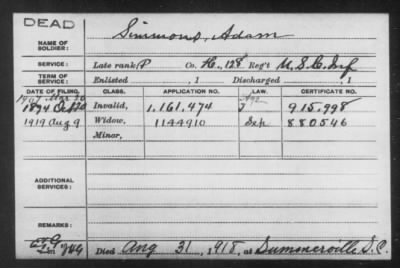 DEAD
NAME OF SOLDIER: Simmons, Adam
SERVICE: Late rank, P Co. H, 128 Reg't U.S.C. Inf
TERM OF SERVICE: Enlisted , 1 Discharged , 1
DATE OF FILING. CLASS. APPLICATION NO. LAW. CERTIFICATE NO.
1907 Mar
1894 Invalid, 1,161,474 915,998
1919 Aug 9 Widow, 1144910 880546
Minor,
ADDITIONAL SERVICES:
REMARKS:
Died Aug 31, 1918, at Summerville S.C.